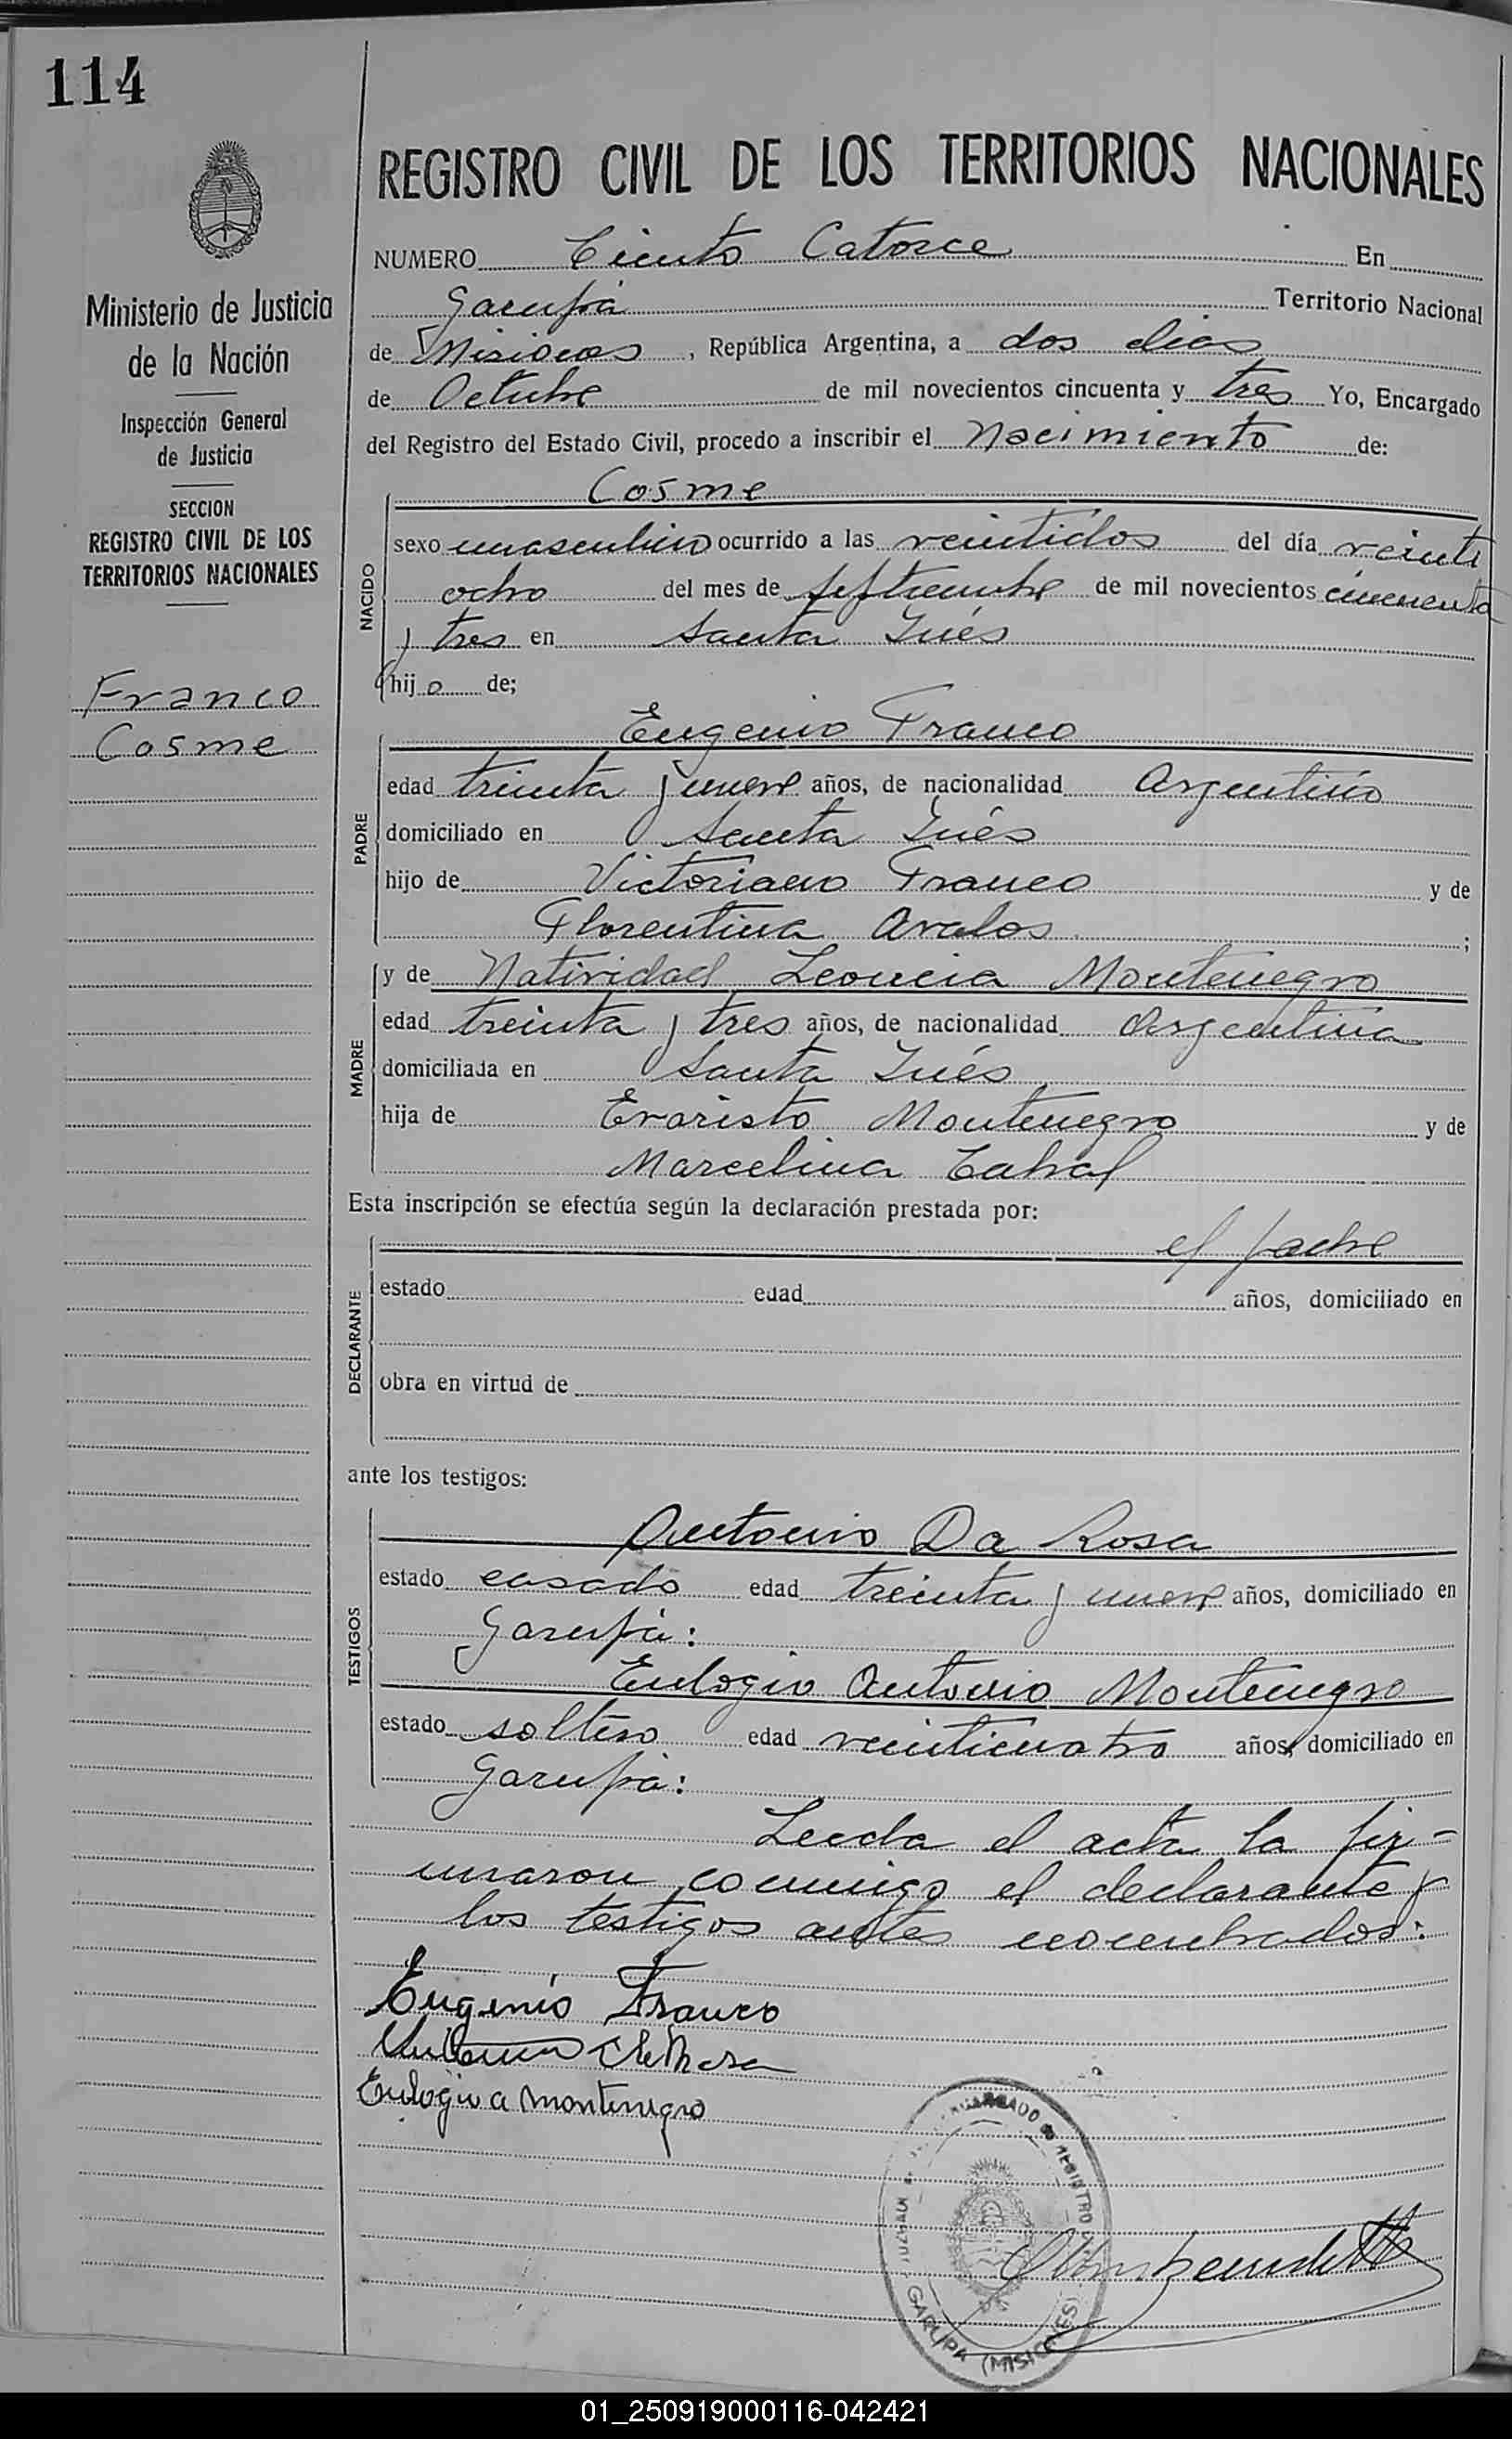 114
REGISTRO CIVIL DE LOS TERRITORIOS NACIONALES
Ministerio de Justicia
de la Nación
Inspección General
de Justicia
SECCION
REGISTRO CIVIL DE LOS
TERRITORIOS NACIONALES
Franco
Cosme
NUMERO Ciento Catorce En
Garupá Territorio Nacional
de Misiones, República Argentina, a dos dias
de Octubre de mil novecientos cincuenta y tres Yo, Encargado
del Registro del Estado Civil, procedo a inscribir el Nacimiento de:
NACIDO
Cosme
sexo masculino ocurrido a las veintidos del día veinti
ocho del mes de septiembre de mil novecientos cincuenta
y tres en Santa Inés
hijo de;
PADRE
Eugenio Franco
edad treinta y nueve años, de nacionalidad Argentino
domiciliado en Santa Inés
hijo de Victoriano Franco y de
Florentina Avalos ;
MADRE
y de Natividad Leoncia Montenegro
edad treinta y tres años, de nacionalidad Argentina
domiciliada en Santa Inés
hija de Evaristo Montenegro y de
Marcelina Cabral
Esta inscripción se efectúa según la declaración prestada por:
DECLARANTE
el padre
estado edad años, domiciliado en
obra en virtud de
ante los testigos:
TESTIGOS
Antonio Da Rosa
estado casado edad treinta y nueve años, domiciliado en
Garupá:
Eulogio Antonio Montenegro
estado soltero edad veinticuatro años, domiciliado en
Garupá:
Leida el acta la fir-
maron conmigo el declarante y
los testigos antes nombrados:
Eugenio Franco
Eulogio A Montenegro
ENCARGADO DE REGISTRO
GARUPA (MISIONES)
01_250919000116-042421